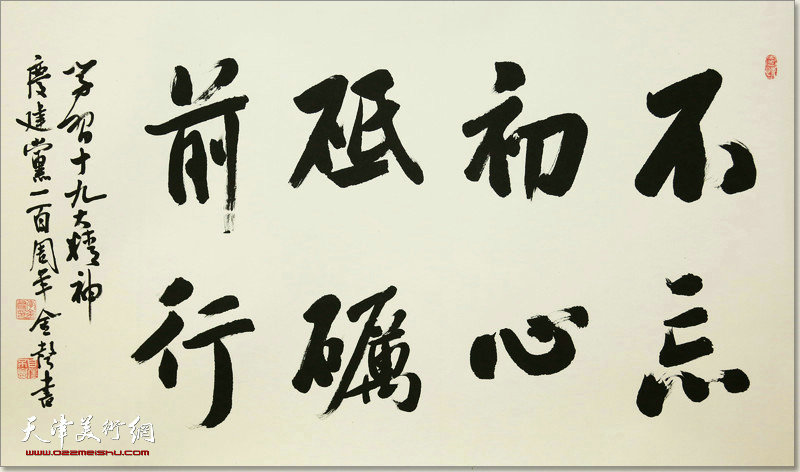 不忘
初心
砥礪
前行
学習十九大精神
慶建黨一百周年 金声書
天津美術網
www.022meishu.com